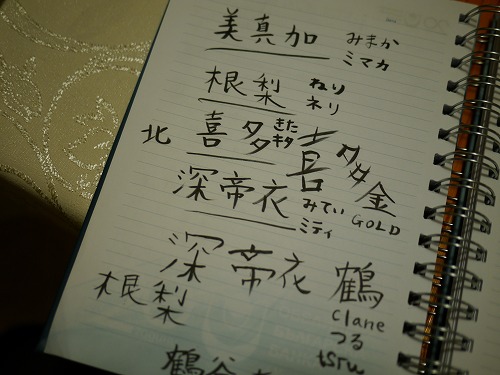 美真加 みまか
ミマカ
根梨 ねり
ネリ
北 喜多 きた
キタ
喜多
金
GOLD
深帝衣 みてい
ミティ
深帝衣 鶴
Clane
つる
tsru
根梨
鶴谷